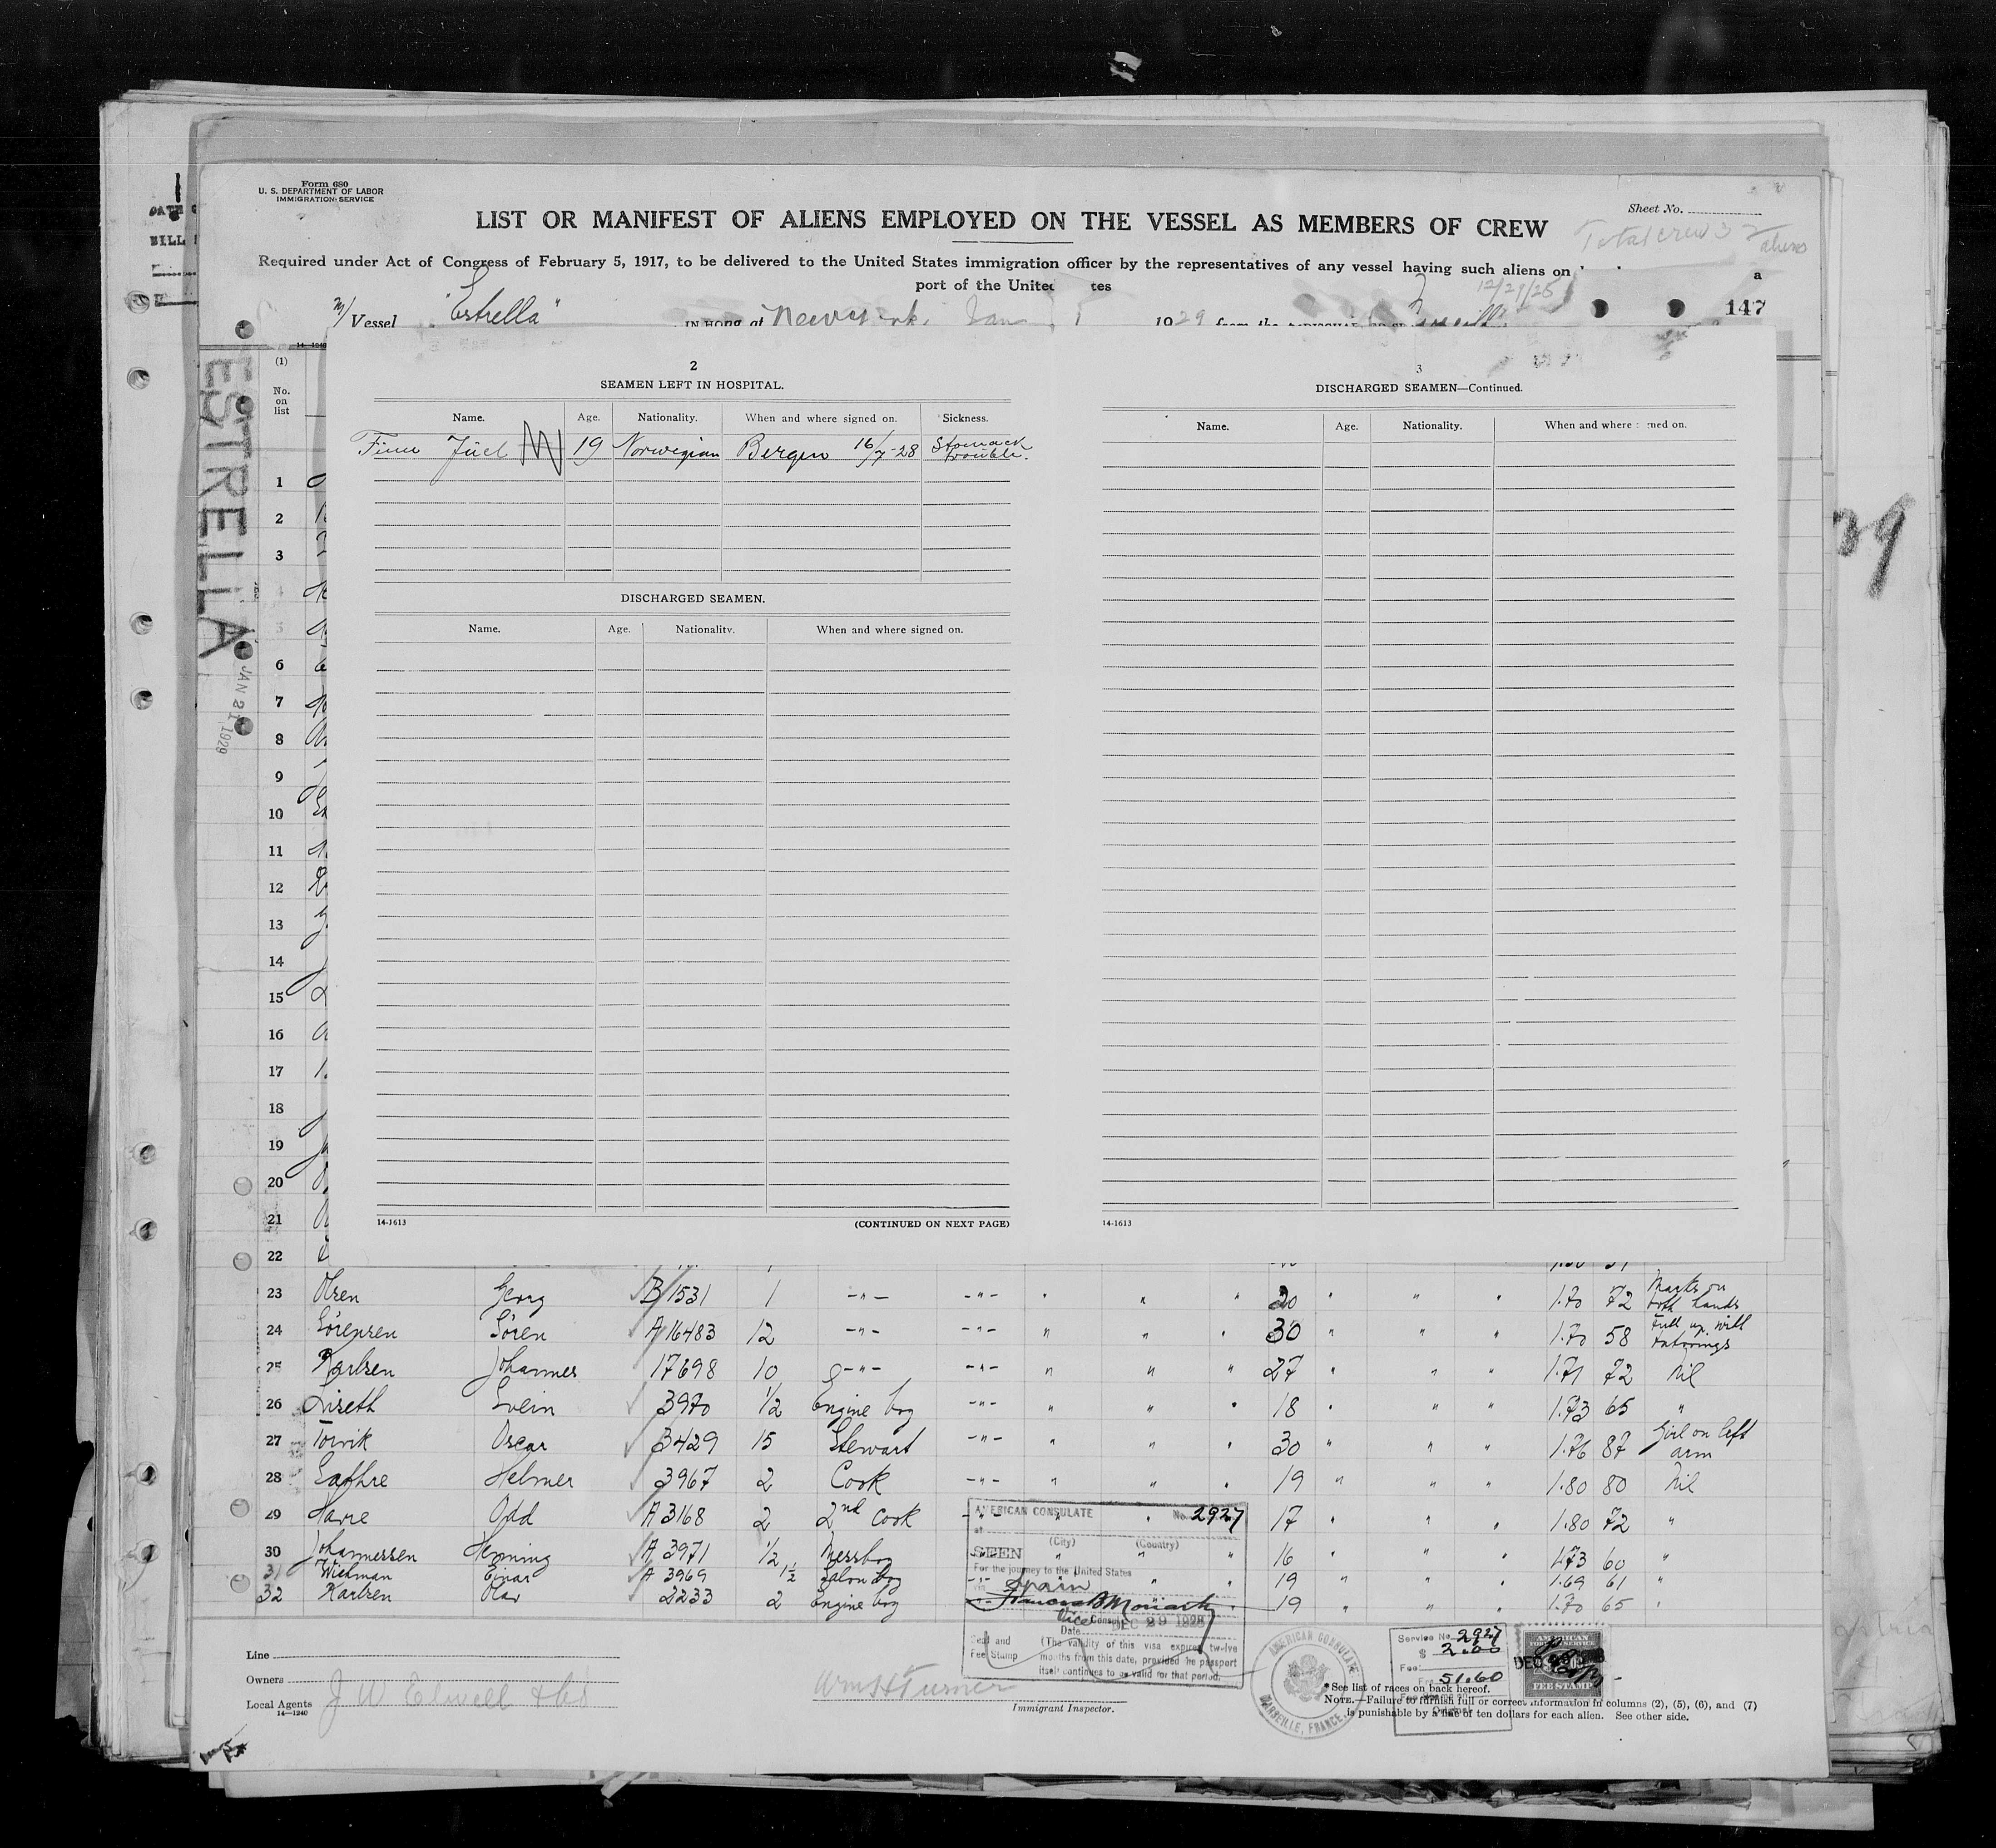 Form 680
U. S. DEPARTMENT OF LABOR
IMMIGRATION SERVICE
Sheet No.
LIST OR MANIFEST OF ALIENS EMPLOYED ON THE VESSEL AS MEMBERS OF CREW
Total crew 32
aliens
Required under Act of Congress of February 5, 1917, to be delivered to the United States immigration officer by the representatives of any vessel having such aliens on
a
port of the United
12/29/28
147
M/ Vessel "Estrella" at New York, Jan 1929 from the
ESTRELLA
JAN 21 1929
39
(1)
No. on list
2
SEAMEN LEFT IN HOSPITAL.
Name. Age. Nationality. When and where signed on. Sickness.
Finn Juel 19 Norwegian Bergen 16/7-28 Stomack trouble.
DISCHARGED SEAMEN.
Name. Age. Nationality. When and where signed on.
14-1613 (CONTINUED ON NEXT PAGE)
3
DISCHARGED SEAMEN—Continued.
Name. Age. Nationality. When and where signed on.
14-1613
1
2
3
4
5
6
7
8
9
10
11
12
13
14
15
16
17
18
19
20
21
22
23 Olsen Georg B 1531 1 -"- -"- " " " 20 " " " 1.70 72 Marks on both hands
24 Sörensen Sören A 16483 12 -"- -"- " " " 30 " " " 1.70 58 Full up with tatovings
25 Karlsen Johannes 17698 10 -"- -"- " " " 27 " " " 1.71 72 Nil
26 Liseth Svein 3970 1/2 Engine boy -"- " " " 18 " " " 1.73 65 "
27 Torvik Oscar 3429 15 Stewart -"- " " " 30 " " " 1.76 87 Girl on left arm
28 Helmer 3967 2 Cook -"- " " " 19 " " " 1.80 80 Nil
29 Odd A 3168 2 2nd Cook " " " 17 " " " 1.80 72 "
30 Johannessen Henning A 3971 1/2 Messboy " " 16 " " " 1.73 60 "
31 Wichman Einar A 3969 1 1/2 Salon boy " " 19 " " " 1.69 61 "
32 Karlsen Olav 2233 2 Engine boy " 19 " " " 1.70 65 "
AMERICAN CONSULATE No. 2927
at
(City) (Country)
SEEN
For the journey to the United States
via Spain
Francis B Moriarty
Vice Consul
Date DEC 29 1928
Seal and Fee Stamp
(The validity of this visa expires twelve months from this date, provided the passport itself continues to be valid for that period.
Line
Owners
Local Agents J W Elwell & Co
14—1240
Wm H Turner
Immigrant Inspector.
AMERICAN CONSULATE
MARSEILLE, FRANCE.
Service No. 2927
$ 2.00
Fee
Frs. 51.60
Original
AMERICAN
FOREIGN SERVICE
FEE STAMP
*See list of races on back hereof.
NOTE.—Failure to furnish full or correct information in columns (2), (5), (6), and (7)
is punishable by a fine of ten dollars for each alien. See other side.